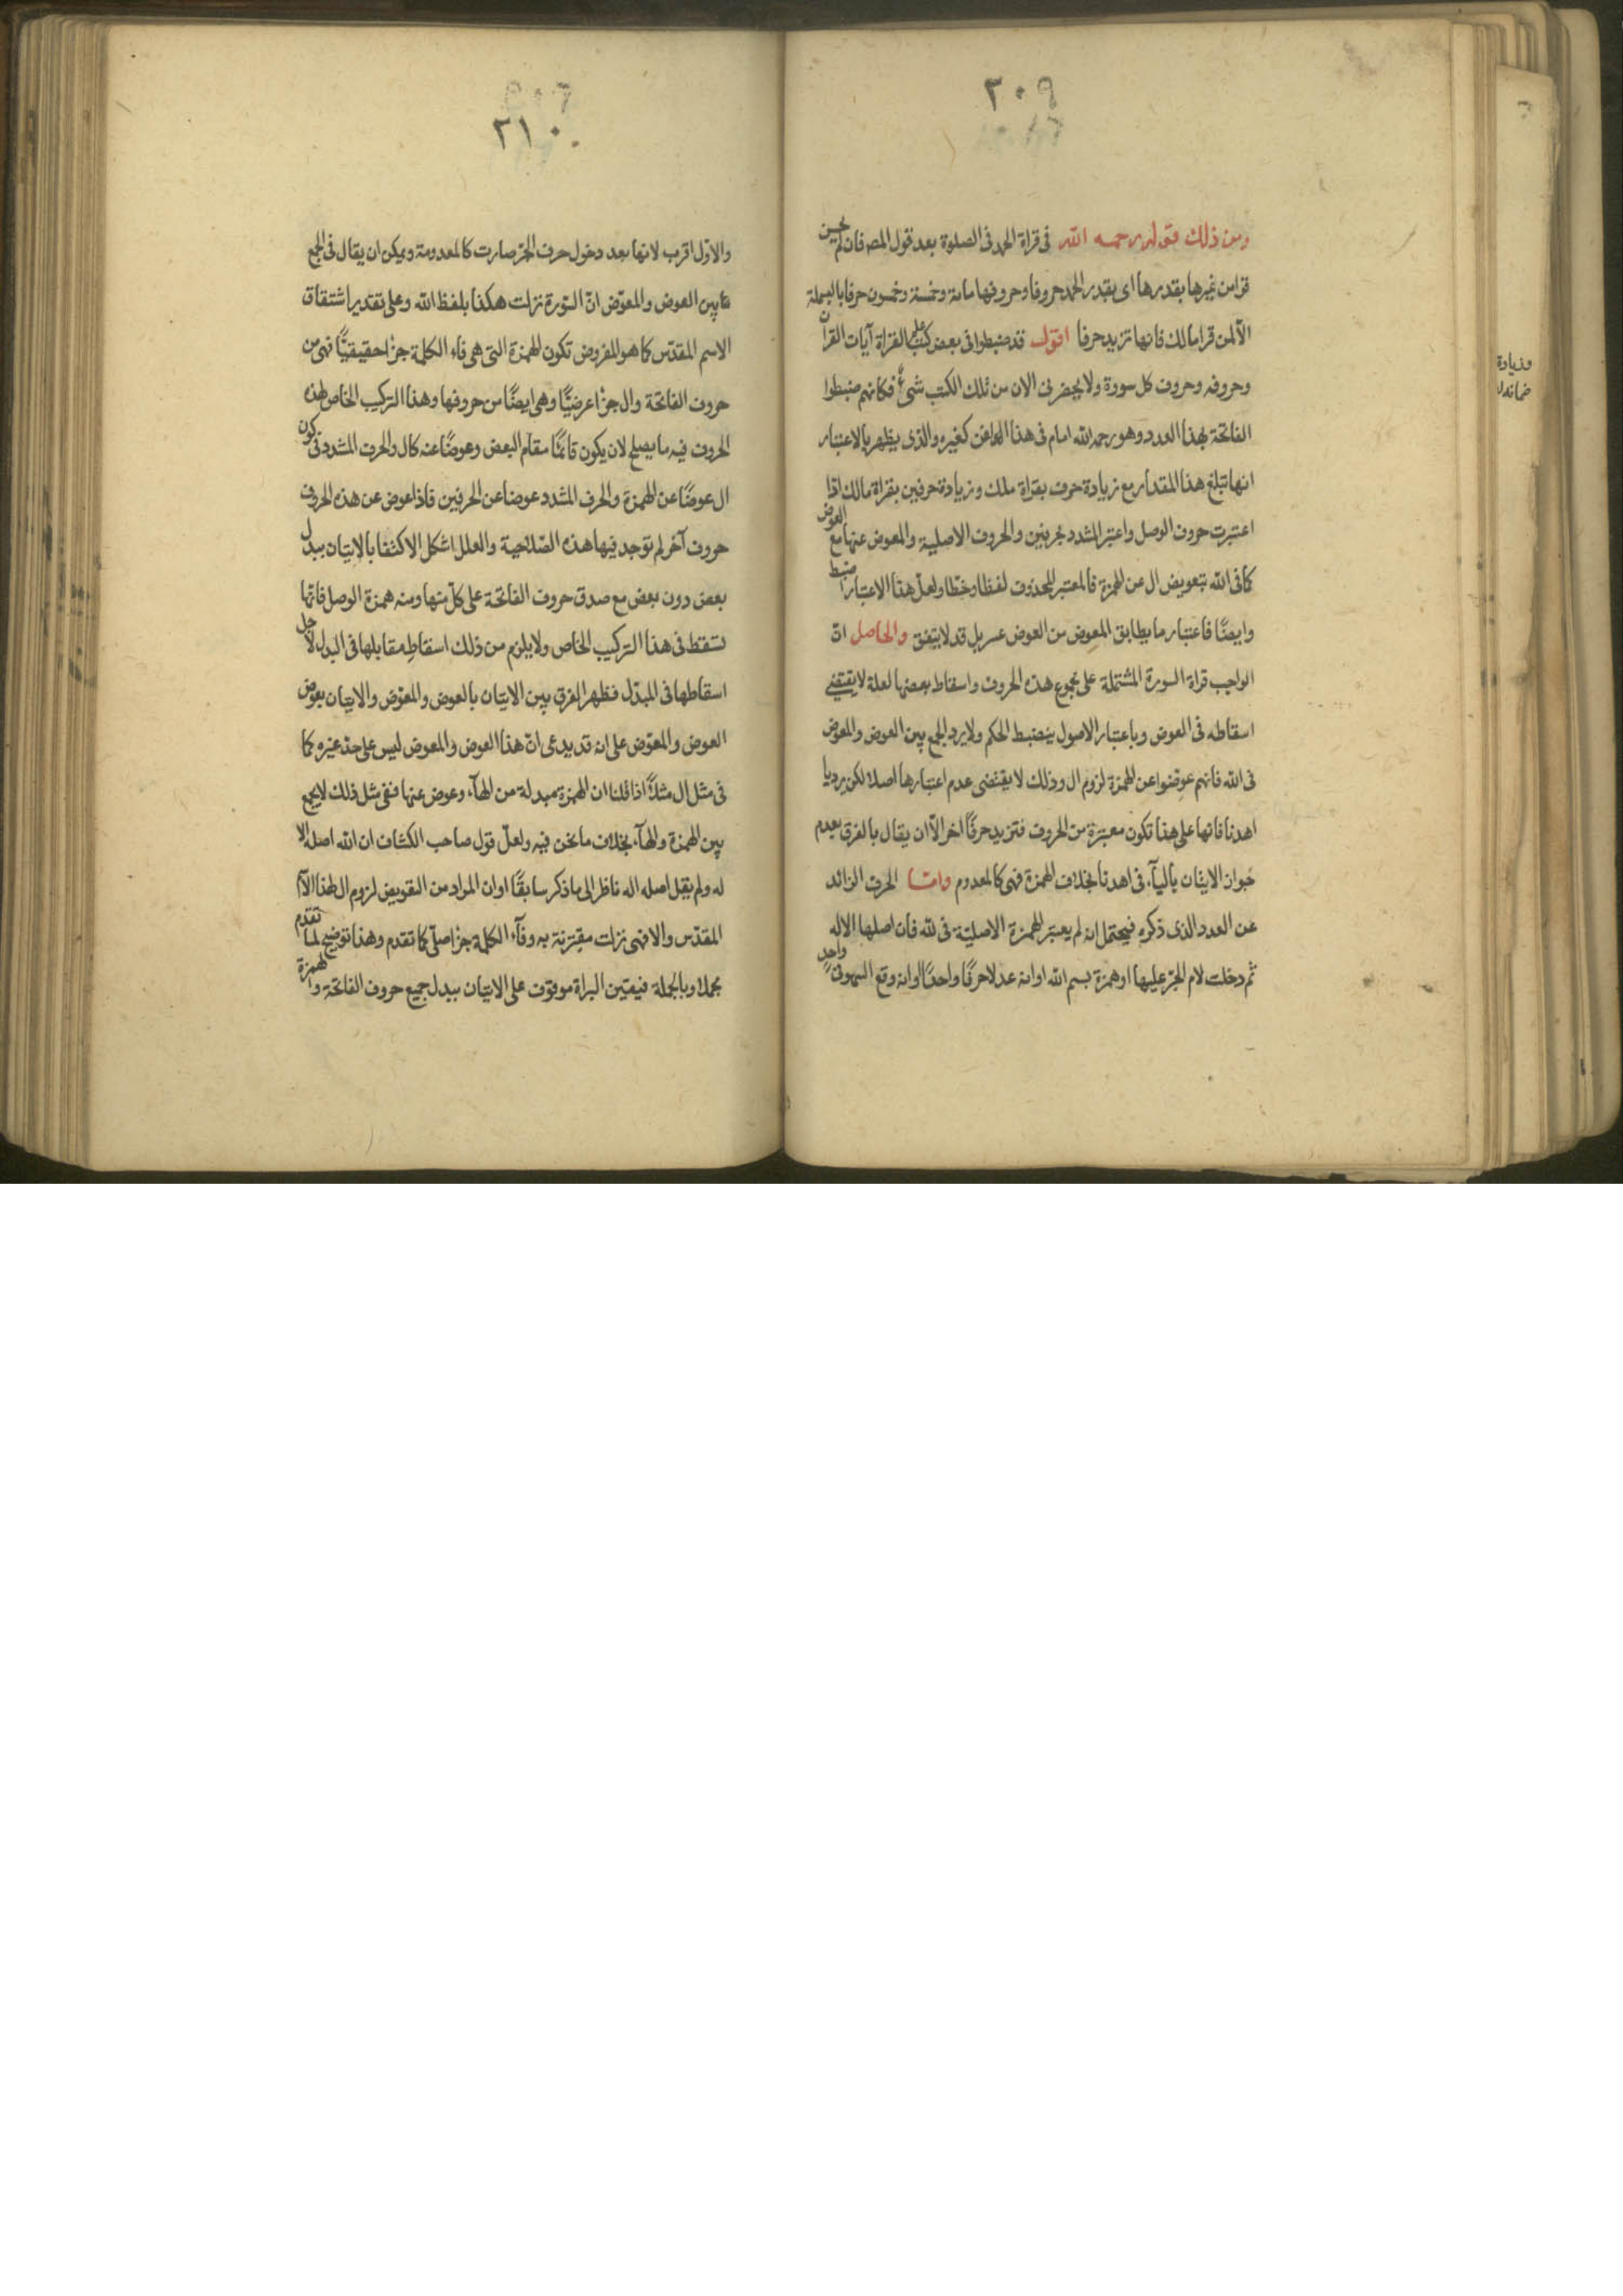 ٢٠٩
ومن ذلك قوله رحمه الله فى قراة الحمد فى الصلوة بعد قول المص فان لم يحسن
قرا من غيرها بقدرها اى بقدر الحمد حروفا وحروفها مائة وخمسة وخمسون حرفا بالبسملة
الا لمن قرا مالك فانها تزيد حرفا اقول قد ضبطوا فى بعض كتب علم القراة آيات القرآن
وحروفه وحروف كل سورة ولا يحضرنى الان من تلك الكتب شئ فكانهم ضبطوا
الفاتحة بهذا العدد وهو رحمه الله امام فى هذا الفن كغيره والذى يظهر بالاعتبار
انها تبلغ هذا المقدار مع زيادة حرف بقراة ملك وزيادة حرفين بقراة مالك اذا
اعتبرت حروف الوصل واعتبر المشدد بحرفين والحروف الاصلية والمعوض عنها مع العوض
كما فى الله بتعويض ال عن الهمزة فالمعتبر المحذوف لفظا وخطا ولعل هذا الاعتبار اضبط
وايضًا فاعتبار ما يطابق المعوض من العوض عسر بل قد لا يتفق والحاصل ان
الواجب قراة السورة المشتملة على مجموع هذه الحروف واسقاط بعضها لعلة لا يقتضى
اسقاطه فى العوض وباعتبار الاصول ينضبط الحكم ولا يرد الجمع بين العوض والمعوض
فى الله فانهم عوضوا عن الهمزة لزوم ال وذلك لا يقتضى عدم اعتبارها اصلا لكن يرد يا
اهدنا فانها على هذا تكون معتبرة من الحروف فتزيد حرفًا اخر الّا ان يقال بالفرق بعدم
جواز الاتيان بالياء فى اهدنا بخلاف الهمزة فهى كالمعدوم واما الحرف الزائد
عن العدد الذى ذكره فيحتمل انه لم يعتبر الهمزة الاصلية فى لله فان اصلها الاله
ثم دخلت لام الجر عليها او همزة بسم الله او انه عد لا حرفًا واحدًا او انه وقع السهو فى واحد
٢١٠
والاوّل اقرب لانها بعد دخول حرف الجرّ صارت كالمعدومة ويمكن ان يقال فى الجمع
ما بين العوض والمعوّض انّ السورة نزلت هكذا بلفظ الله وعلى تقدير اشتقاق
الاسم المقدّس كما هو المفروض تكون الهمزة التى هى فاء الكلمة جزا حقيقيًّا فهى من
حروف الفاتحة وال جزا عرضيًّا وهى ايضًا من حروفها وهذا التركيب الخاص لهذه
الحروف فيه ما يصلح لان يكون قائمًا مقام البعض وعوضًا عنه كال والحرف المشدد فى كون
ال عوضًا عن الهمزة والحرف المشدد عوضا عن الحرفين فاذا عوض عن هذه الحروف
حروف آخر لم توجد فيها هذه الصّلاحية والعلل اشكل الاكتفا بالاتيان ببدل
بعض دون بعض مع صدق حروف الفاتحة على كلّ منها ومنه همزة الوصل فانّها
تسقط فى هذا التركيب الخاص ولا يلزم من ذلك اسقاط مقابلها فى البدل لاجل
اسقاطها فى المبدّل فظهر الفرق بين الاتيان بالعوض والمعوّض والاتيان بعوض
العوض والمعوّض على انه قد يدعى انّ هذا العوض والمعوض ليس على حدّ غيره كما
فى مثل ال مثلاً اذا قلنا ان الهمزة مبدلة من الهاء وعوض عنها ففى مثل ذلك لا يجمع
بين الهمزة والهاء بخلاف ما نحن فيه ولعلّ قول صاحب الكشاف ان الله اصله الا
له ولم يقل اصله اله ناظر الى ما ذكر سابقًا او ان المراد من التعويض لزوم ال لهذا الاسم
المقدّس والا فهى نزلت مقترنة به وفاء الكلمة جزا اصلّى كما تقدم وهذا توضيح لما تقدم
مجملا وبالجملة فيقين البراة موقوف على الاتيان ببدل جميع حروف الفاتحة والهمزة
وزيادة